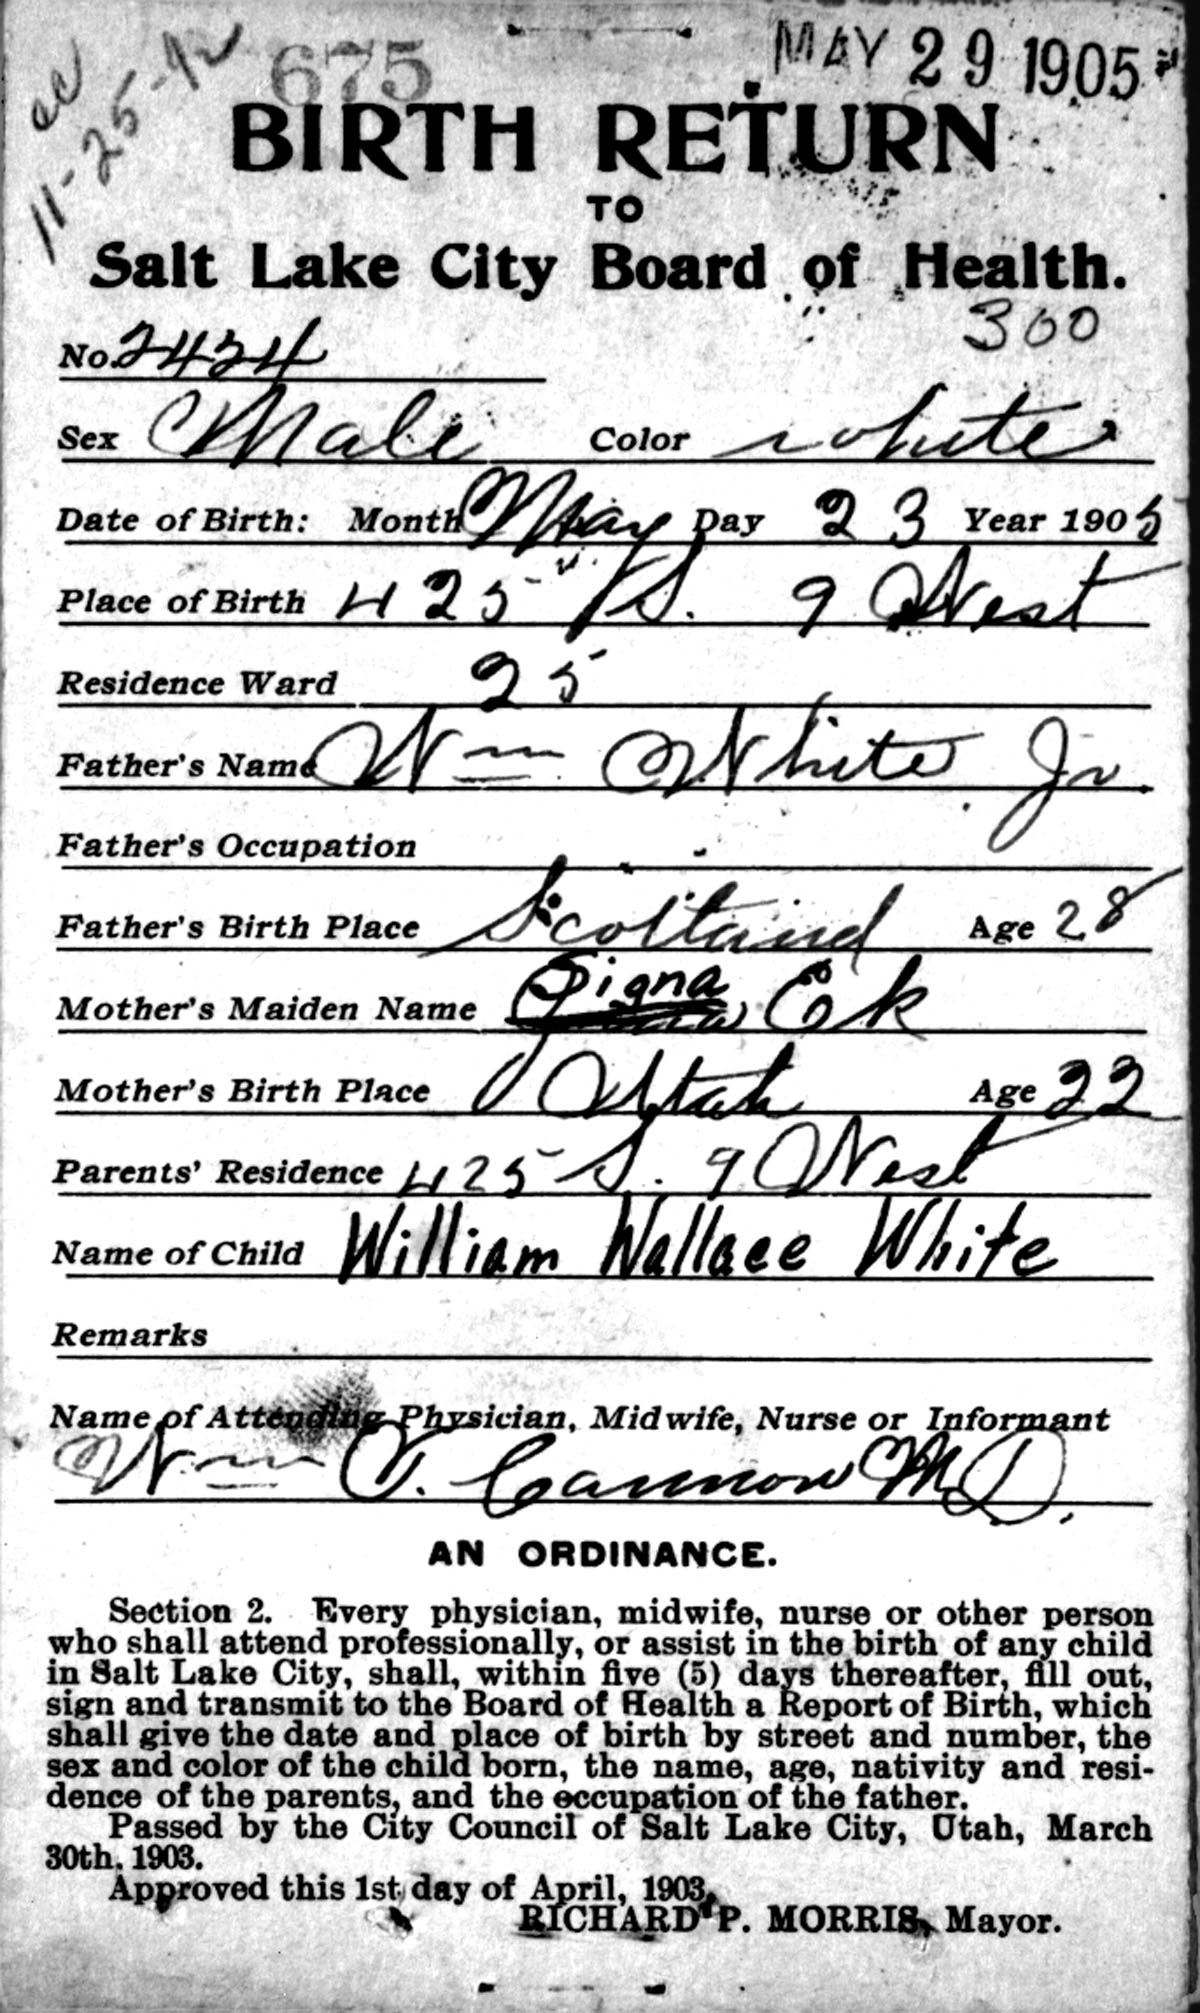 675
MAY 29 1905
11-25-42
BIRTH RETURN
TO
Salt Lake City Board of Health.
300
No. 2424
Sex Male Color white
Date of Birth: Month May Day 23 Year 1905
Place of Birth 425 S. 9 West
Residence Ward 25
Father's Name Wm White Jr.
Father's Occupation
Father's Birth Place Scotland Age 28
Mother's Maiden Name Signa Ek
Mother's Birth Place Utah Age 22
Parents' Residence 425 S. 9 West
Name of Child William Wallace White
Remarks
Name of Attending Physician, Midwife, Nurse or Informant
Wm T. Cannon M.D.
AN ORDINANCE.
Section 2. Every physician, midwife, nurse or other person
who shall attend professionally, or assist in the birth of any child
in Salt Lake City, shall, within five (5) days thereafter, fill out,
sign and transmit to the Board of Health a Report of Birth, which
shall give the date and place of birth by street and number, the
sex and color of the child born, the name, age, nativity and resi-
dence of the parents, and the occupation of the father.
Passed by the City Council of Salt Lake City, Utah, March
30th, 1903.
Approved this 1st day of April, 1903.
RICHARD P. MORRIS, Mayor.